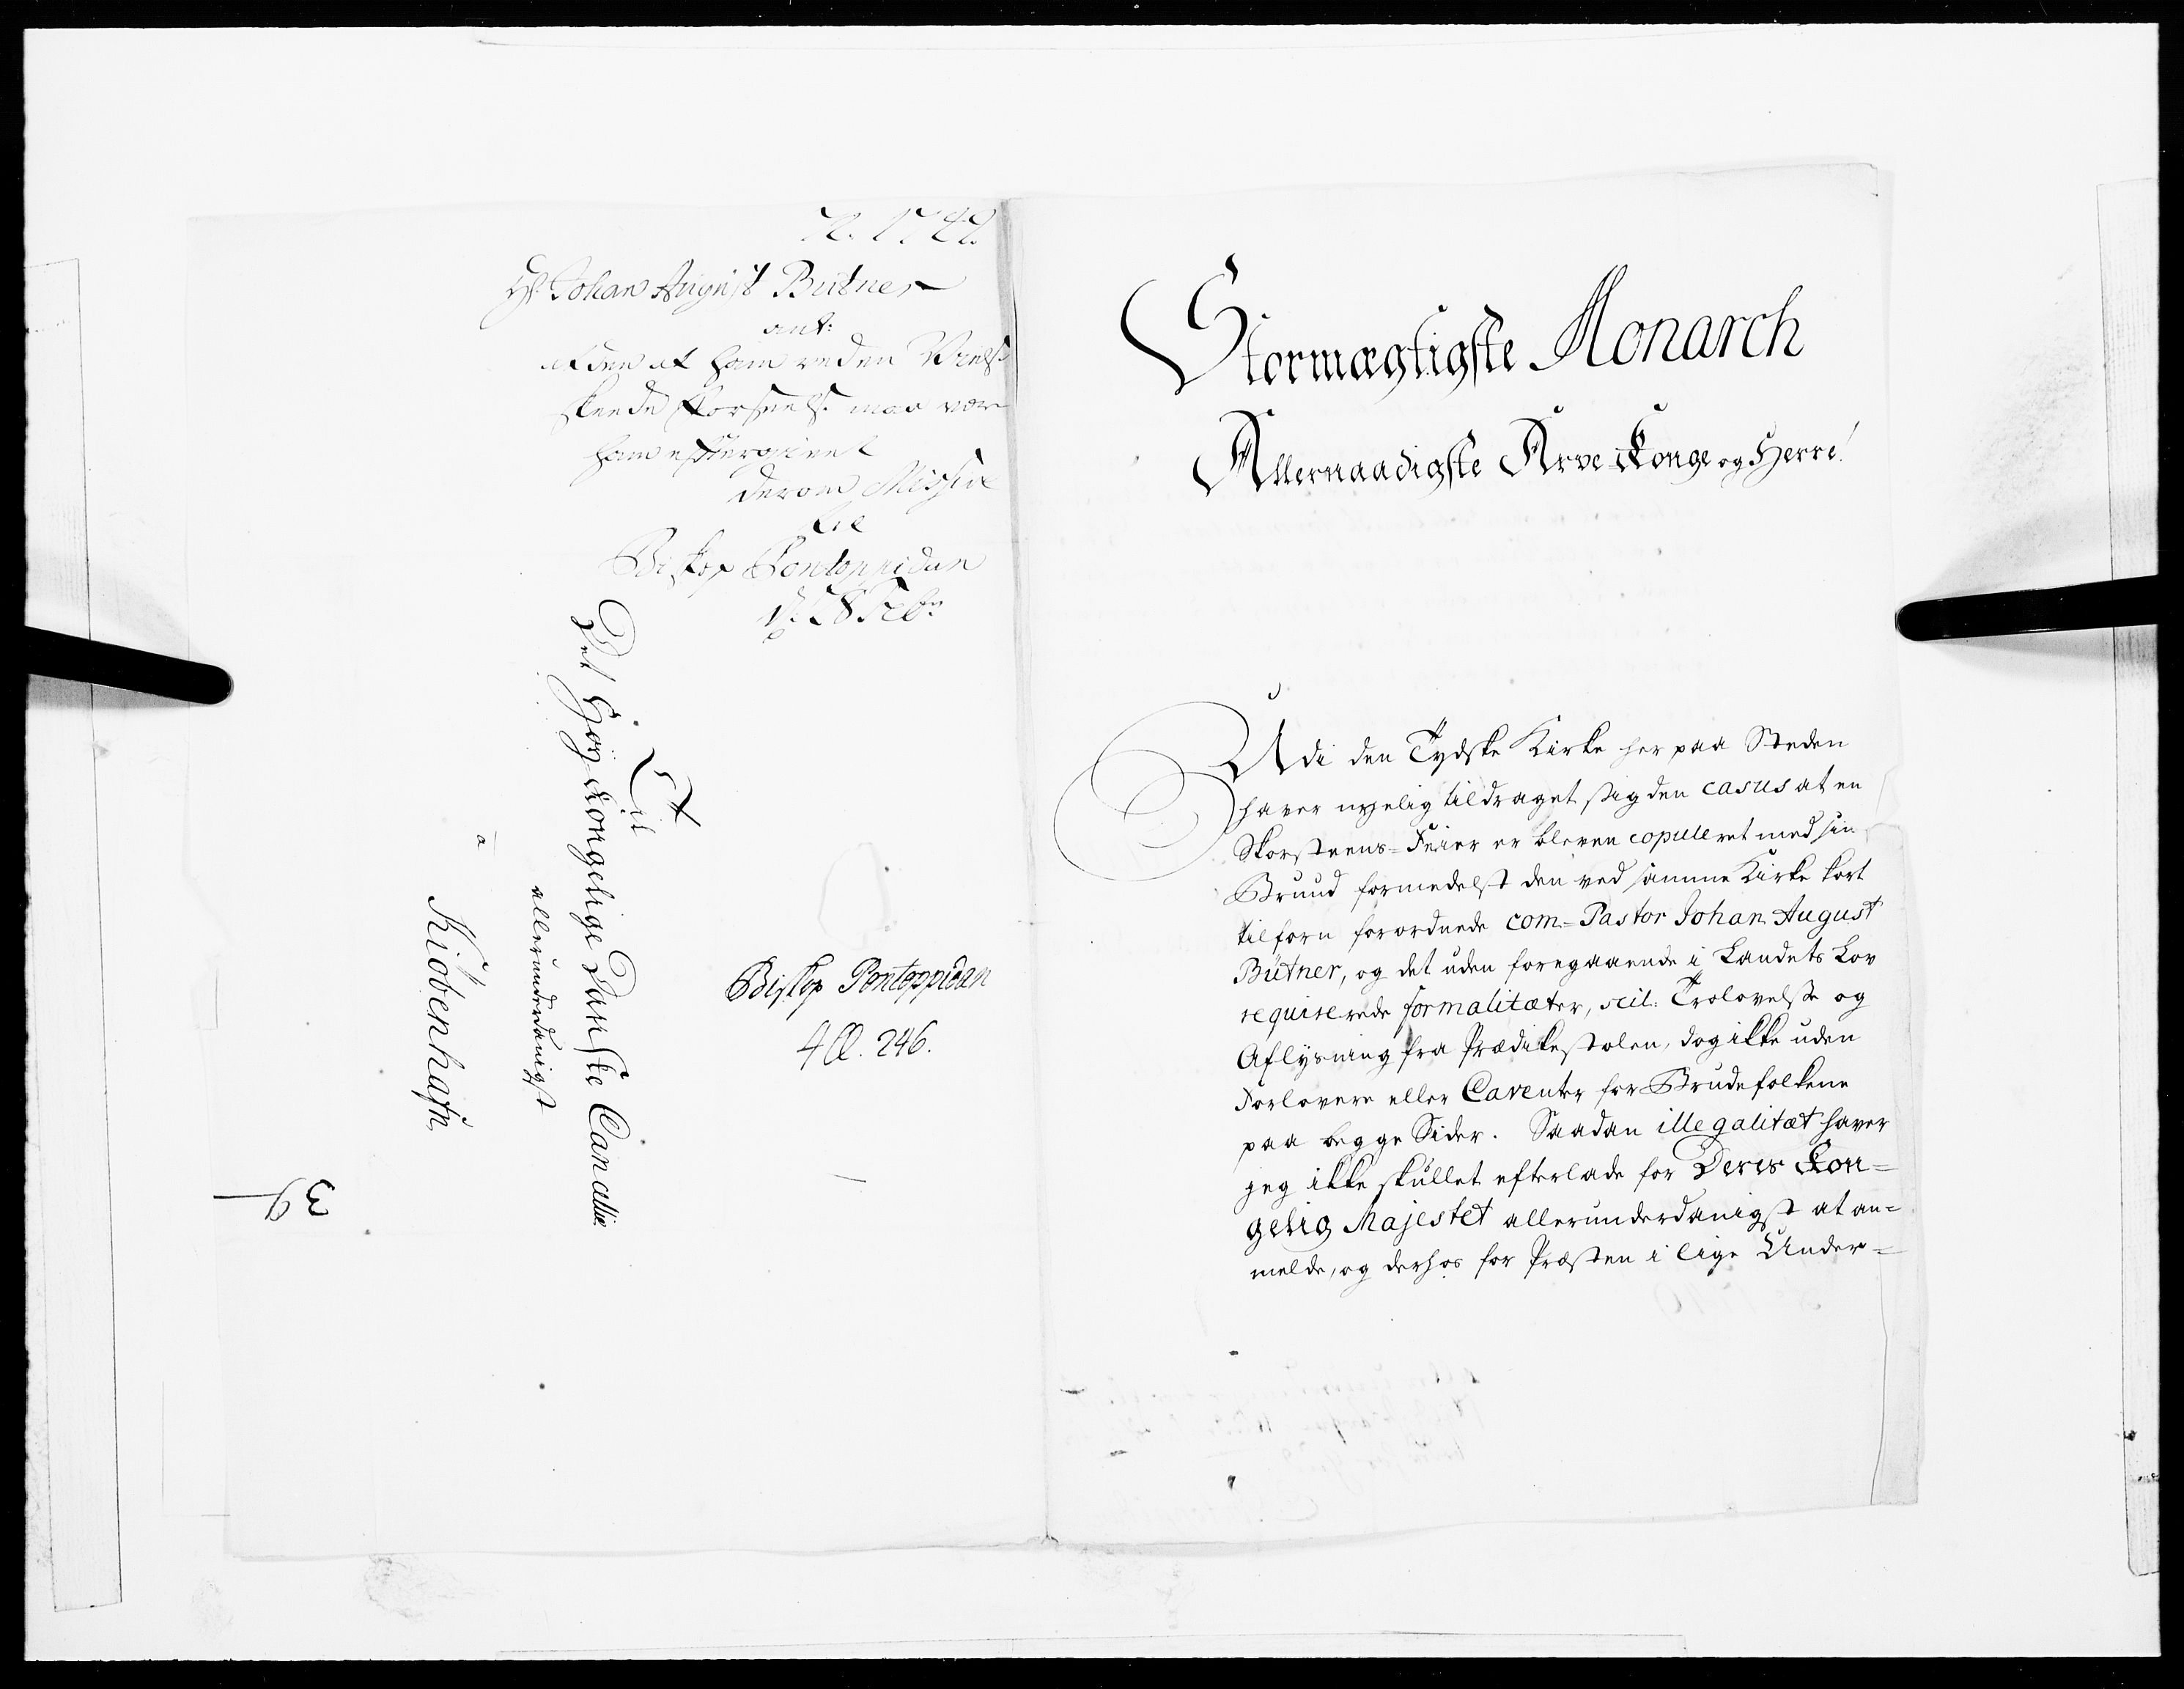 Hr Johan August Bütner
ant:
at den af ham ved en Vielse
skeede Forseelse maa være
ham eftergivet
derom Missive
til
Biskop Pontoppidan
d. 28 Febr
Til
Det Høy Kongelige Danske Cancellie
allerunderdanigst
a
Kiöbenhafn
Biskop Pontoppidan
fol. 246.
39
Stormægtigste Monarch
Allernaadigste Arve-Konge og Herre!
Udi den Tydske Kirke her paa Steden
haver nyelig tildraget sig den casus at en
Skorsteens-Feier er bleven copuleret med sin
Bruud formedelst den ved samme Kirke kort
tilforn forordnede com-Pastor Johan August
Bütner, og det uden foregaaende i Landets Lov
requirerede formalitæter, scil: Trolovelse og
Aflysning fra Prædikestolen, dog ikke uden
Forlovere eller Caventer for Brudefolkene
paa begge Sider. Saadan illegalitæt haver
jeg ikke skullet efterlade for Deres Kon=
gelig Majestet allerunderdanigst at an=
melde, og derhos for Præsten i lige Under=